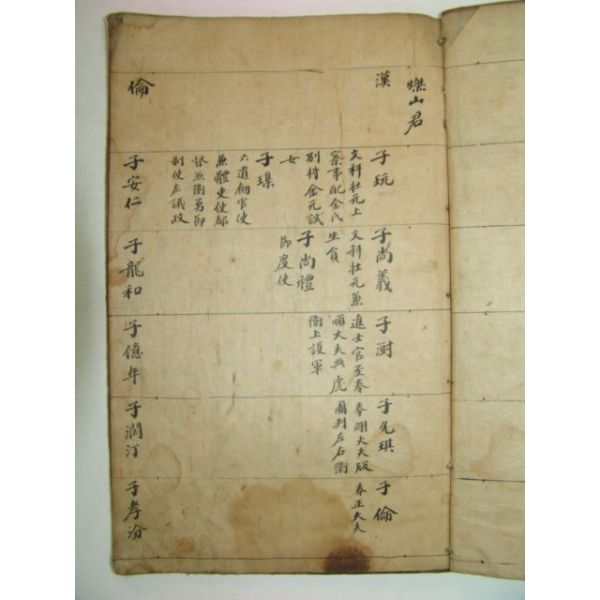 燦山君
漢
子玩
文科壯元上
寀事配金氏
別将金元試
女
子璟
六道劒官使
兼體吏使都
督魚衛易御
制使左議政
子尚義
文科壯元蒸
生員
子尚禮
節度使
子尉
進士官至奉
順大夫典虎
衛上護軍
子允琪
奉翊大夫版
圖判左右衛
子倫
奉正大夫
倫
子安仁
子龍和
子億年
子潤汀
子孝渝